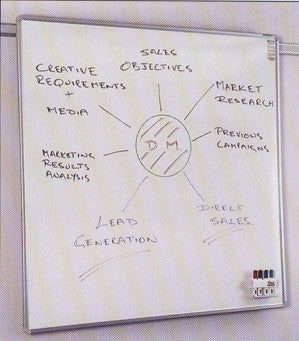 SALES
OBJECTIVES
CREATIVE
REQUIREMENTS
+
MEDIA
MARKET
RESEARCH
D M
PREVIOUS
CAMPAIGNS
MARKETING
RESULTS
ANALYSIS
LEAD
GENERATION
DIRECT
SALES